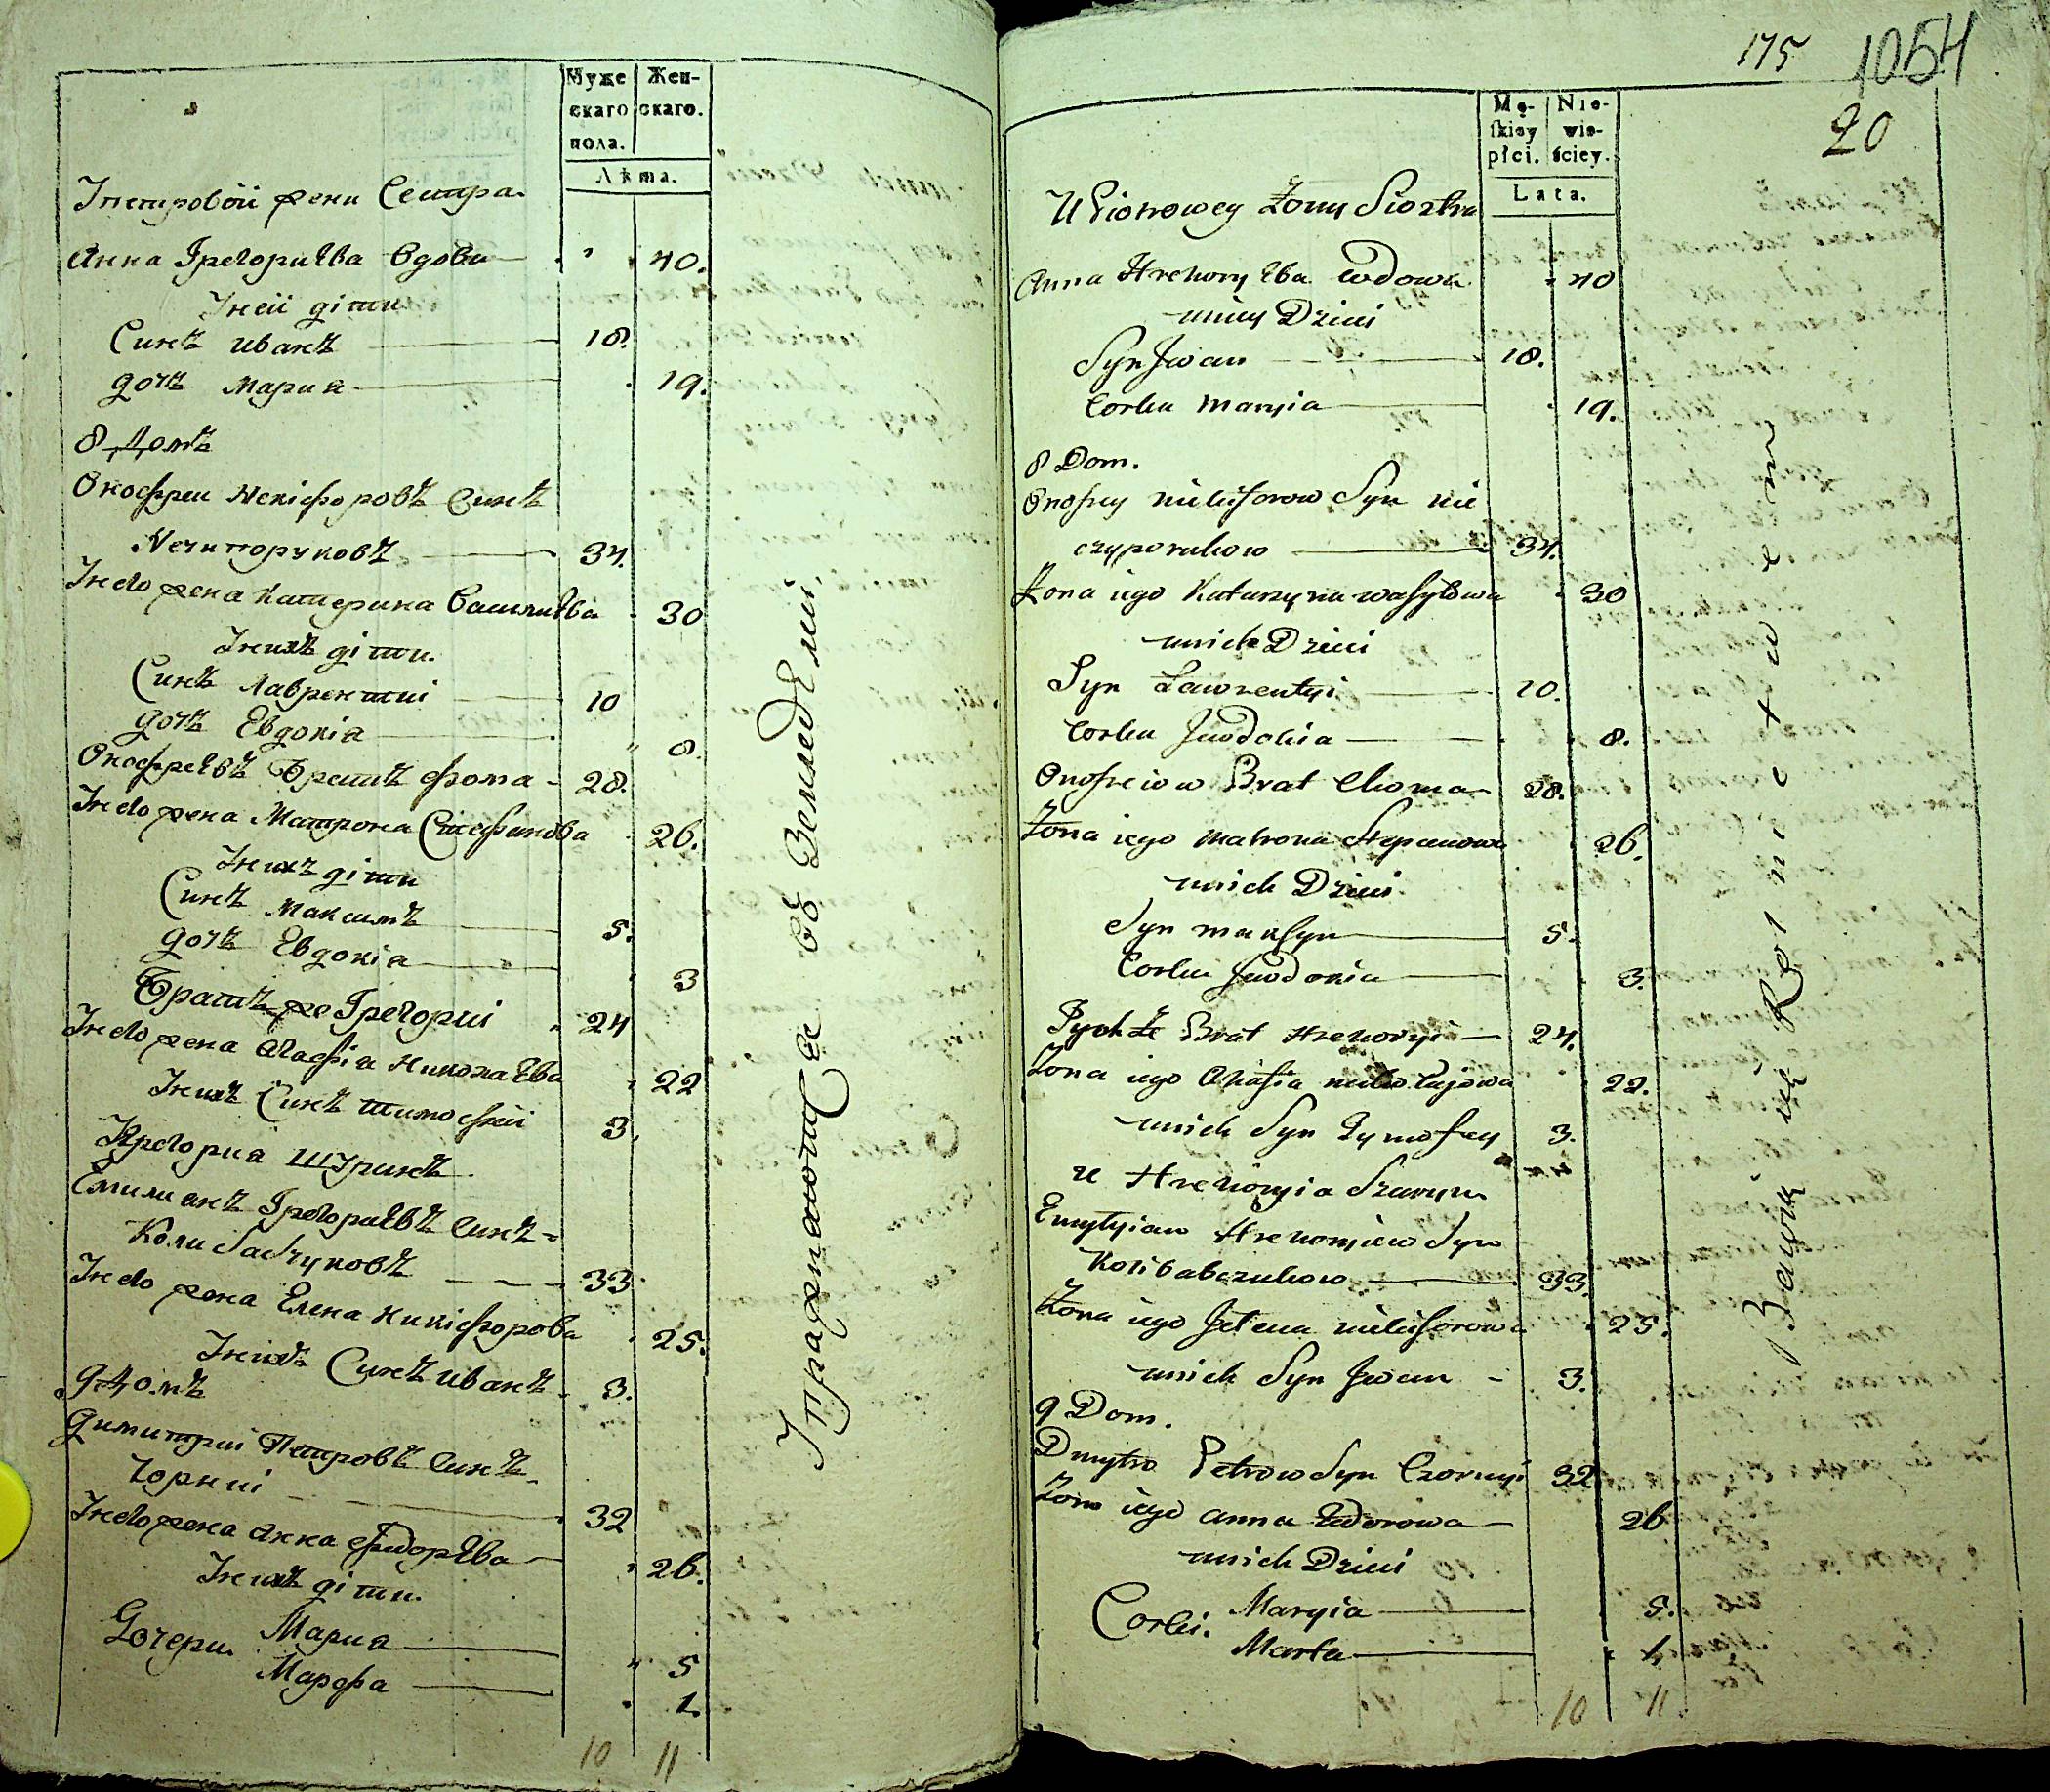 Муже
скаго
пола.
Жен-
скаго.
Лѣта.
Упетровой жени Сестра
Анна Григориѣва вдова 40.
Унеи діти
Синъ иванъ 18.
дочь Мария 19.
8 Домъ
Онофрии Некіфоровъ Синъ
Нечипоруковъ 34.
Унего жена Катерина Василиѣва 30
Унихъ діти.
Синъ Лаврентиі 10
дочь Евдокіа 8.
Онофреѣвъ Братъ Фома 28.
Унего жена Матрона Стефанова 26.
Унихъ діти
Синъ Максимъ 5.
дочь Евдокіа 3
Братъ же Григориі 24
Унего жена Агафіа Николаѣва 22
Унихъ Синъ тимофей 3.
Григориа Шуринъ
Емилианъ Григориѣвъ Синъ
Колибабчуковъ 33
Унего жена Елена Никіфорова 25.
Унихъ Синъ иванъ 3.
9 Домъ
Димитриі Петровъ Синъ
Чорниі 32
Унего жена Анна Фидорѣва 26.
Унихъ діти.
Дочери. Мариа 5
Марфа 1.
10 11
Упражнаютса въ Земледѣліи
175 1054
20
Mę-
ſkiey
płci.
Nie-
wie-
ściey.
Lata.
U Piotrowey Żony Siostra
Anna Hrehoryѣва wdowa 40
uniey Dzieci
Syn Jwan 18.
Corka Maryia 19.
8 Dom.
Onofrey nikiforow Syn nie
czyporukow 34.
Żona iego Katarzyna wasylowa 30
unich Dzieci
Syn Lawrentyi 10.
Corka Jewdokia 8.
Onofreiow Brat Choma 28.
Żona iego Matrona Stepanowa 26.
unich Dzieci
Syn Maksym 5.
Corka Jewdokia 3.
Tychże Brat Hrehoryi 24.
Żona iego Ahafia nikołajowa 22.
unich Syn Tymofiey 3.
u Hrehoryia Szuryn
Emylyian Hrehoryiew Syn
Kolibabczukow 33.
Żona iego Jelena nikiforowa 25.
unich Syn Jwan 3.
9 Dom.
Dmytro Petrow Syn Czornyi 32
Żona iego Anna Fedorowa 26
unich Dzieci
Corki. Maryia 5.
Marta 1.
10 11
Bawią się Rolnictwem